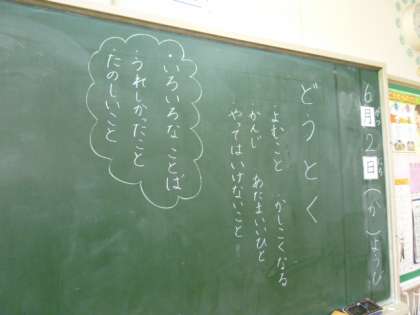 6月2日(か)ようび
がつ
にち
どうとく
・よむこと かしこくなる
・かんじ あたまいいひと
・やってはいけないこと
・いろいろなことば
・うれしかったこと
・たのしいこと